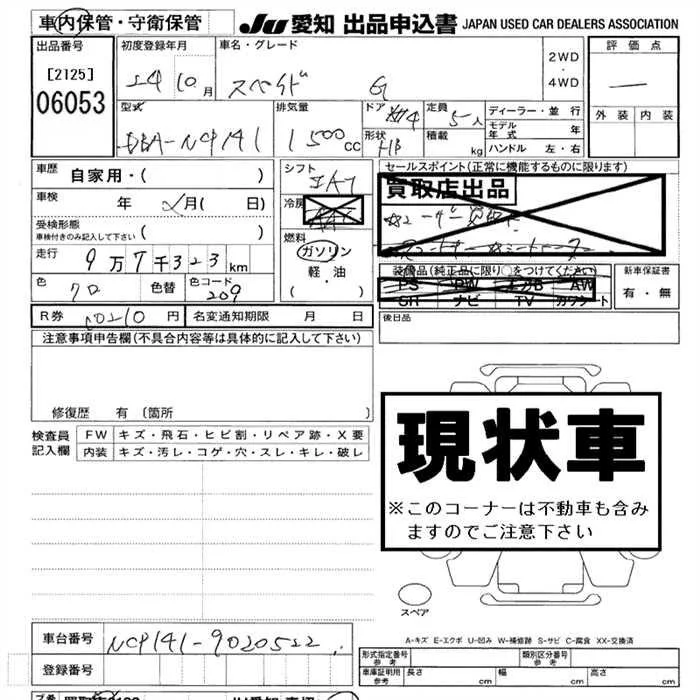 車内保管・守衛保管 JU 愛知 出品申込書 JAPAN USED CAR DEALERS ASSOCIATION
出品番号 初度登録年月 車名・グレード 評価点
[2125] 24 10月 スペイド G 2WD・4WD ―
06053 型式 排気量 ドア 4 定員 5人 ディーラー・並行 外装 内装
DBA-NCP141 1500cc 形状 HB 積載 kg モデル年式 年
ハンドル 左・右
車歴 自家用・( ) シフト IAT セールスポイント(正常に機能するものに限ります)
車検 年 月( 日) 冷房 買取店出品
受検形態 車検付きのみ記入して下さい ( ) 燃料
走行 9万7千323km ガソリン 装備品(純正品に限り○をつけてください) 新車保証書
色 クロ 色替 色コード 209 軽油 PS PW エアB AW 有・無
・( ) SR ナビ TV カワシート
R券 10210円 名変通知期限 月 日 後日品
注意事項申告欄(不具合内容等は具体的に記入して下さい)
修復歴 有 [箇所
現状車
※このコーナーは不動車も含みますのでご注意下さい
検査員記入欄 FW キズ・飛石・ヒビ割・リペア跡・X要
内装 キズ・汚レ・コゲ・穴・スレ・キレ・破レ
スペア
A-キズ E-エクボ U-凹み W-補修跡 S-サビ C-腐食 XX-交換済
車台番号 NCP141-9020522
登録番号 形式指定番号 参考 類別区分番号 参考
車庫証明用 参考 長さ cm 幅 cm 高さ cm